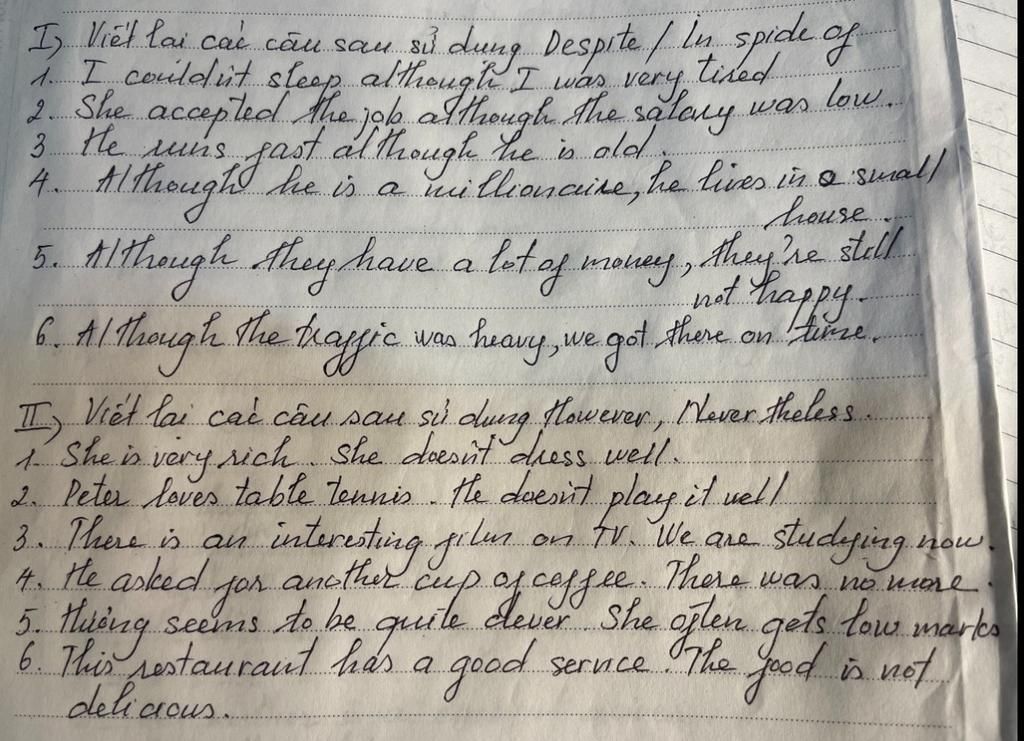 I) Viết lai các câu sau sử dung Despite / In spide of
1. I couldn't sleep although I was very tired
2. She accepted the job although the salary was low.
3 He runs fast although he is old.
4. Although he is a millionaire, he lives in a small
house.
5. Although they have a lot of money, they're still
not happy.
6. Although the traffic was heavy, we got there on time.
II) Viết lai các câu sau sử dung However, Never theless.
1. She is very rich. She doesn't dress well.
2. Peter loves table tennis. He doesn't play it well
3. There is an interesting film on TV. We are studying now.
4. He asked for another cup of coffee. There was no more.
5. Hương seems to be quite clever. She often gets low marks
6. This restaurant has a good service. The food is not
delicious.